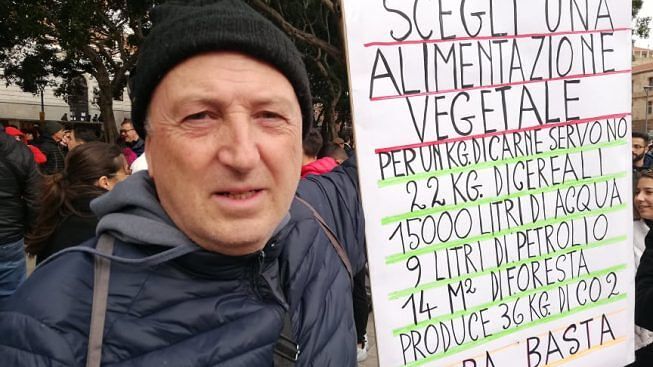 SCEGLI UNA
ALIMENTAZIONE
VEGETALE
PER UN KG. DI CARNE SERVONO
22 KG. DI CEREALI
15000 LITRI DI ACQUA
9 LITRI DI PETROLIO
14 M² DI FORESTA
PRODUCE 36 KG. DI CO2
BASTA